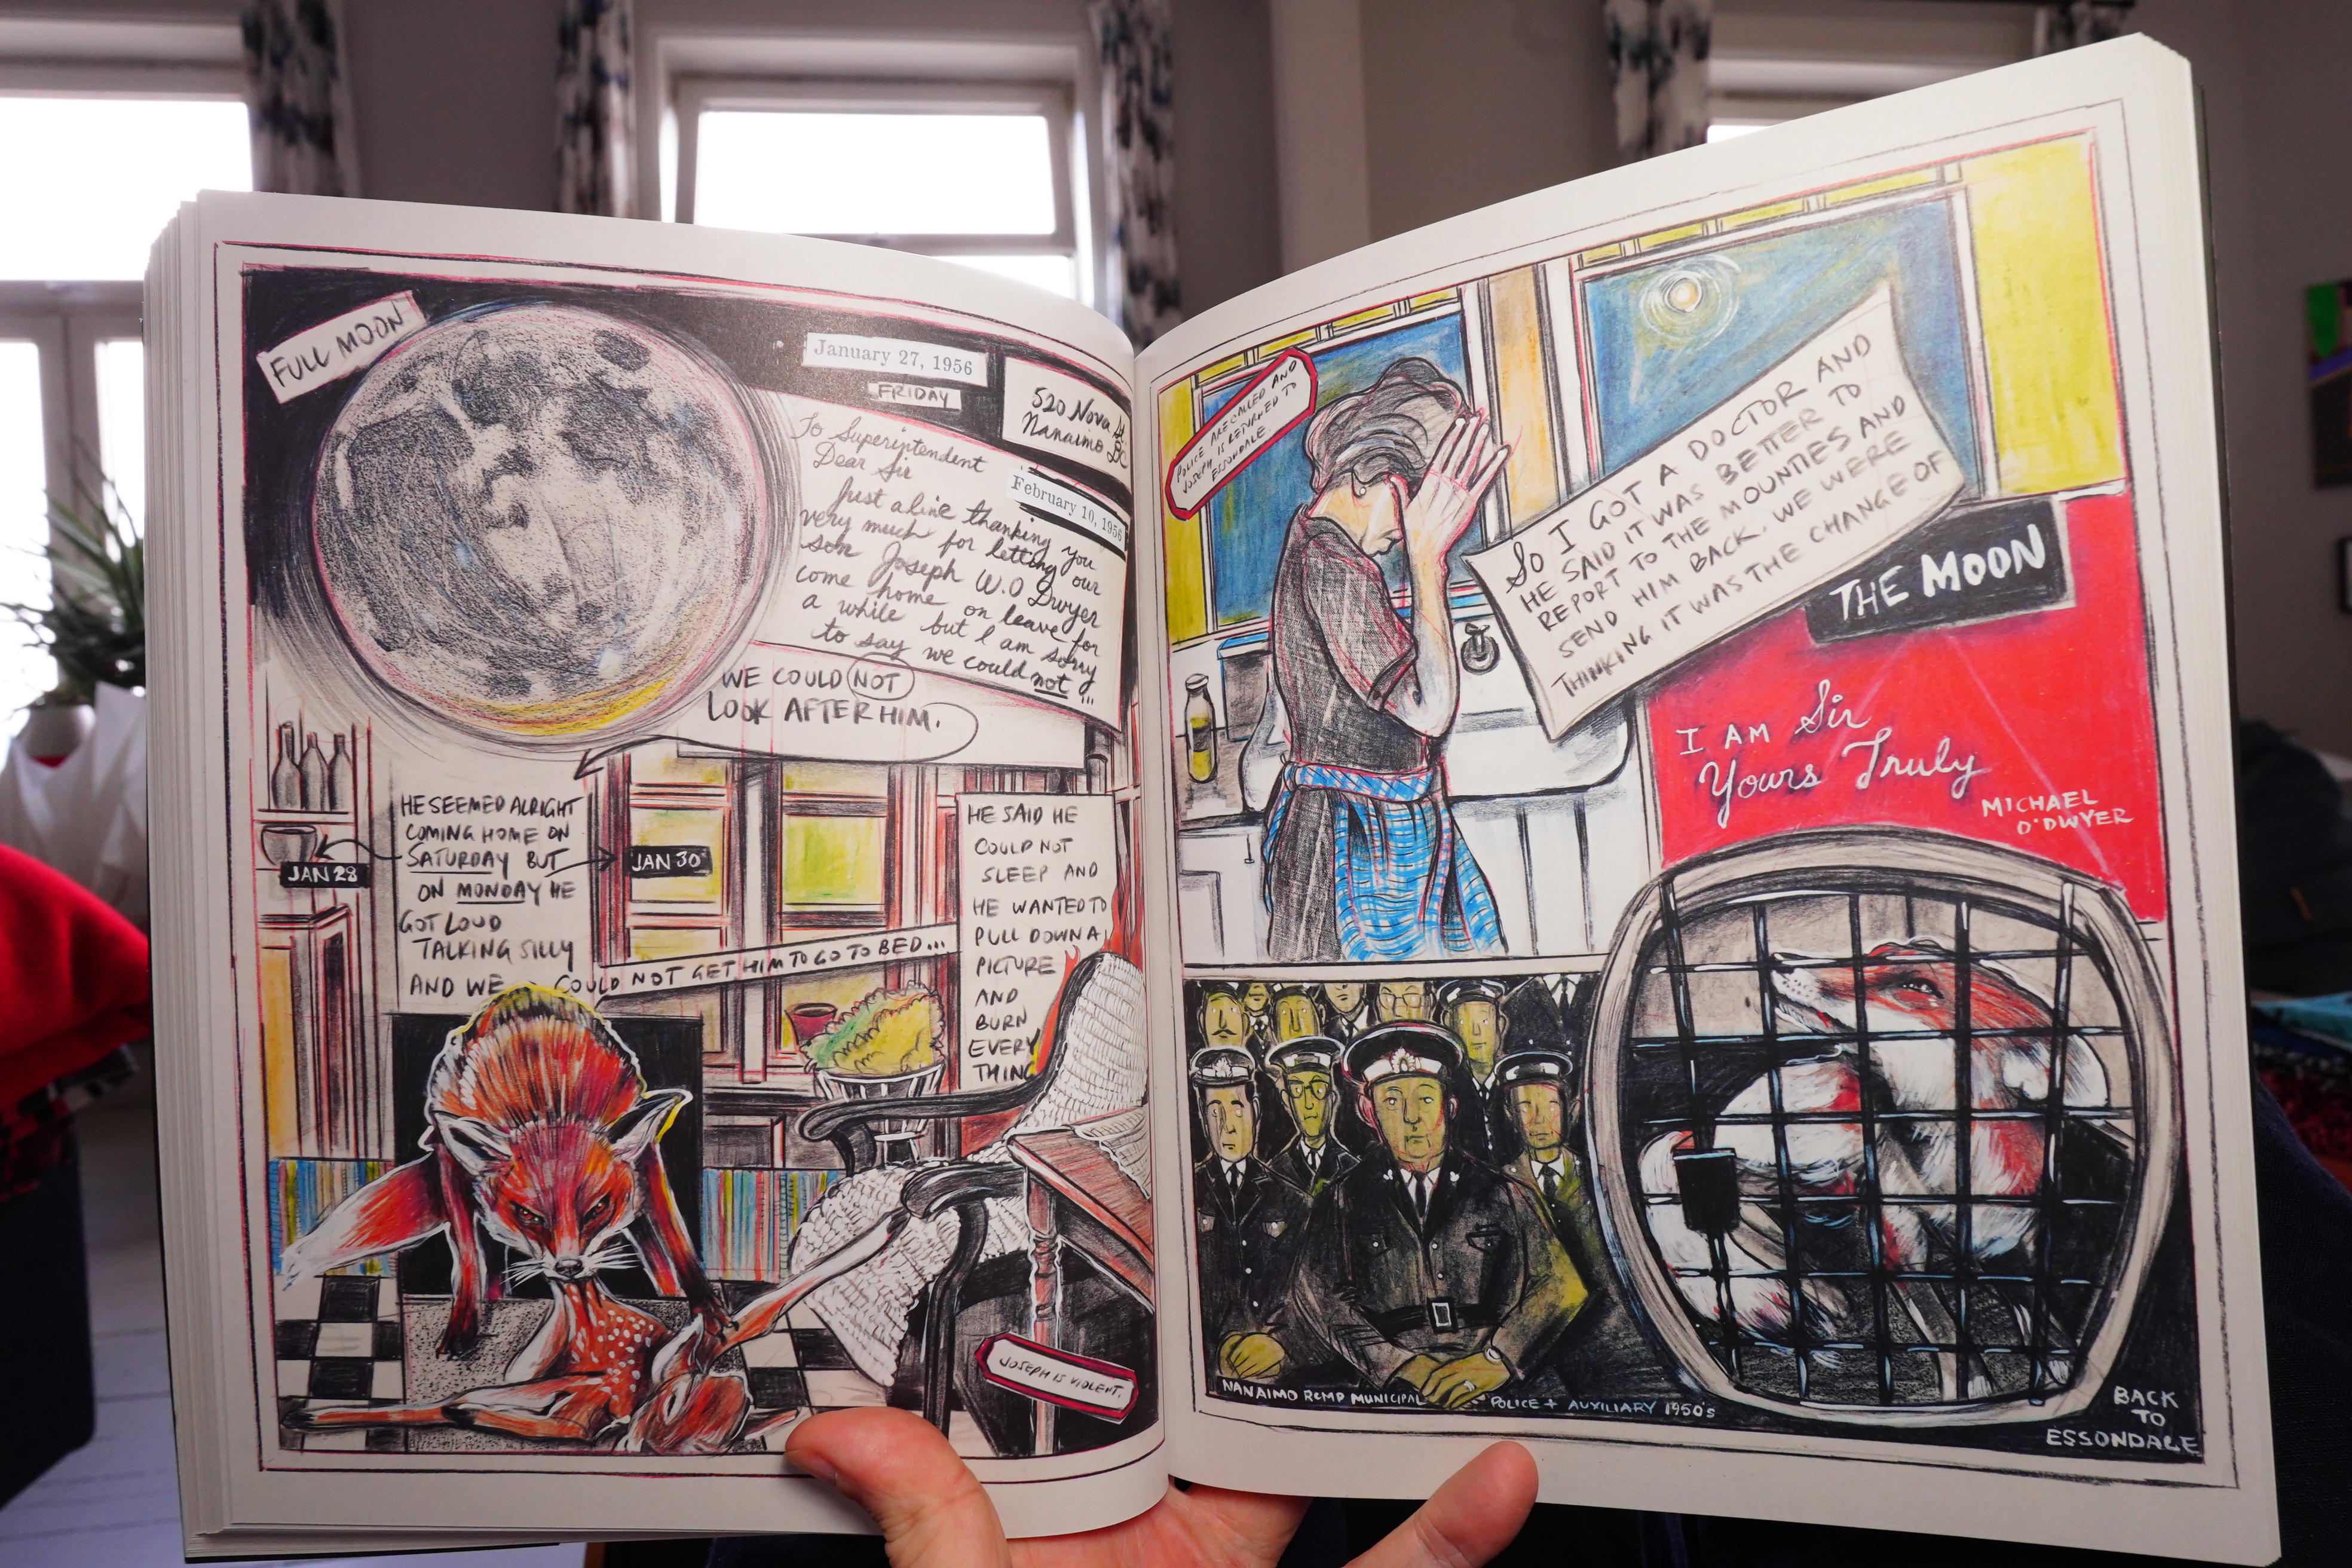 FULL MOON
January 27, 1956
FRIDAY
520 Nova St.
Nanaimo
BC
To Superintendent
Dear Sir
February 10, 1956
Just a line thanking you
very much for letting our
son Joseph W.O Dwyer
come home on leave for
a while but I am sorry
to say we could not...
WE COULD NOT
LOOK AFTER HIM.
HE SEEMED ALRIGHT
COMING HOME ON
SATURDAY BUT
ON MONDAY HE
GOT LOUD
TALKING SILLY
AND WE
JAN 28
JAN 30
COULD NOT GET HIM TO GO TO BED...
HE SAID HE
COULD NOT
SLEEP AND
HE WANTED TO
PULL DOWN A
PICTURE
AND
BURN
EVERY
THING
JOSEPH IS VIOLENT.
POLICE ARE CALLED AND
JOSEPH IS RETURNED TO
ESSONDALE
SO I GOT A DOCTOR AND
HE SAID IT WAS BETTER TO
REPORT TO THE MOUNTIES AND
SEND HIM BACK. WE WERE
THINKING IT WAS THE CHANGE OF
THE MOON
I AM Sir
Yours Truly
MICHAEL
O'DWYER
NANAIMO RCMP MUNICIPAL POLICE + AUXILIARY 1950'S
BACK
TO
ESSONDALE